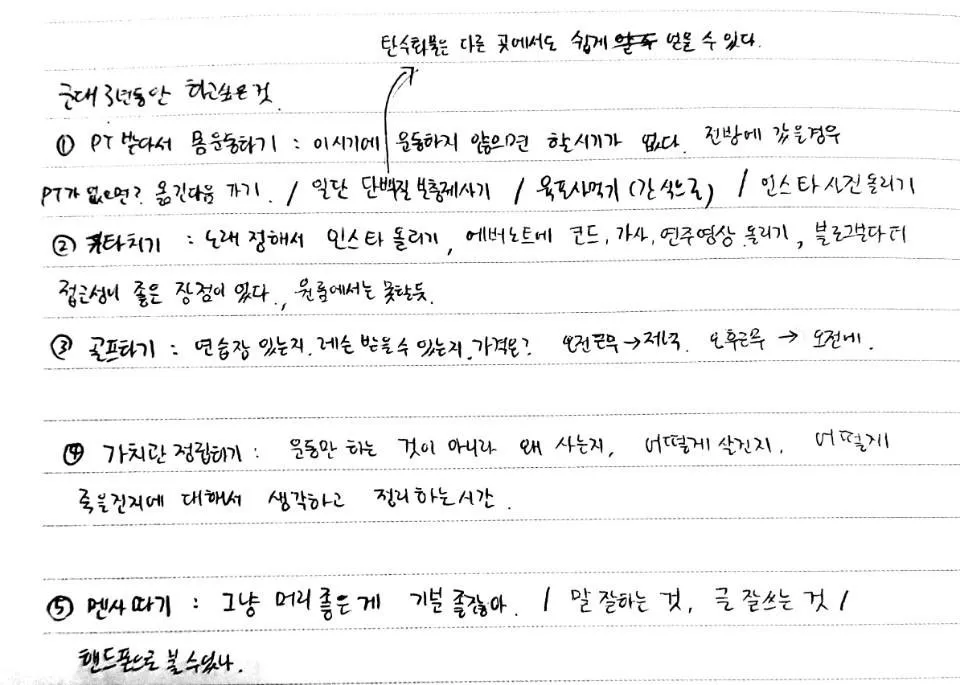 탄수화물은 다른 곳에서도 쉽게 얻을 수 있다.
군대 3년동안 하고싶은것.
① PT 받다서 몸운동하기 : 이시기에 운동하지 않으면 할시기가 없다. 전방에 갔을경우
PT가 없으면? 옮긴다음 가기. / 일단 단백질 보충제사기 / 육포사먹기 (간식으로) / 인스타사진올리기
② 기타치기 : 노래 정해서 인스타 올리기, 에버노트에 코드, 가사, 연주영상 올리기, 블로그보다 더
접근성이 좋은 장점이 있다., 원룸에서는 못할듯.
③ 골프타기 : 연습장 있는지. 레슨 받을수 있는지. 가격은? 오전근무 → 저녁. 오후근무 → 오전에.
④ 가치관 정립하기 : 운동만 하는 것이 아니라 왜 사는지, 어떻게 살건지. 어떻게
죽을건지에 대해서 생각하고 정리하는시간.
⑤ 멘사따기 : 그냥 머리 좋은게 기분 좋잖아. / 말 잘하는 것, 글 잘쓰는 것 /
핸드폰으로 볼수있나.